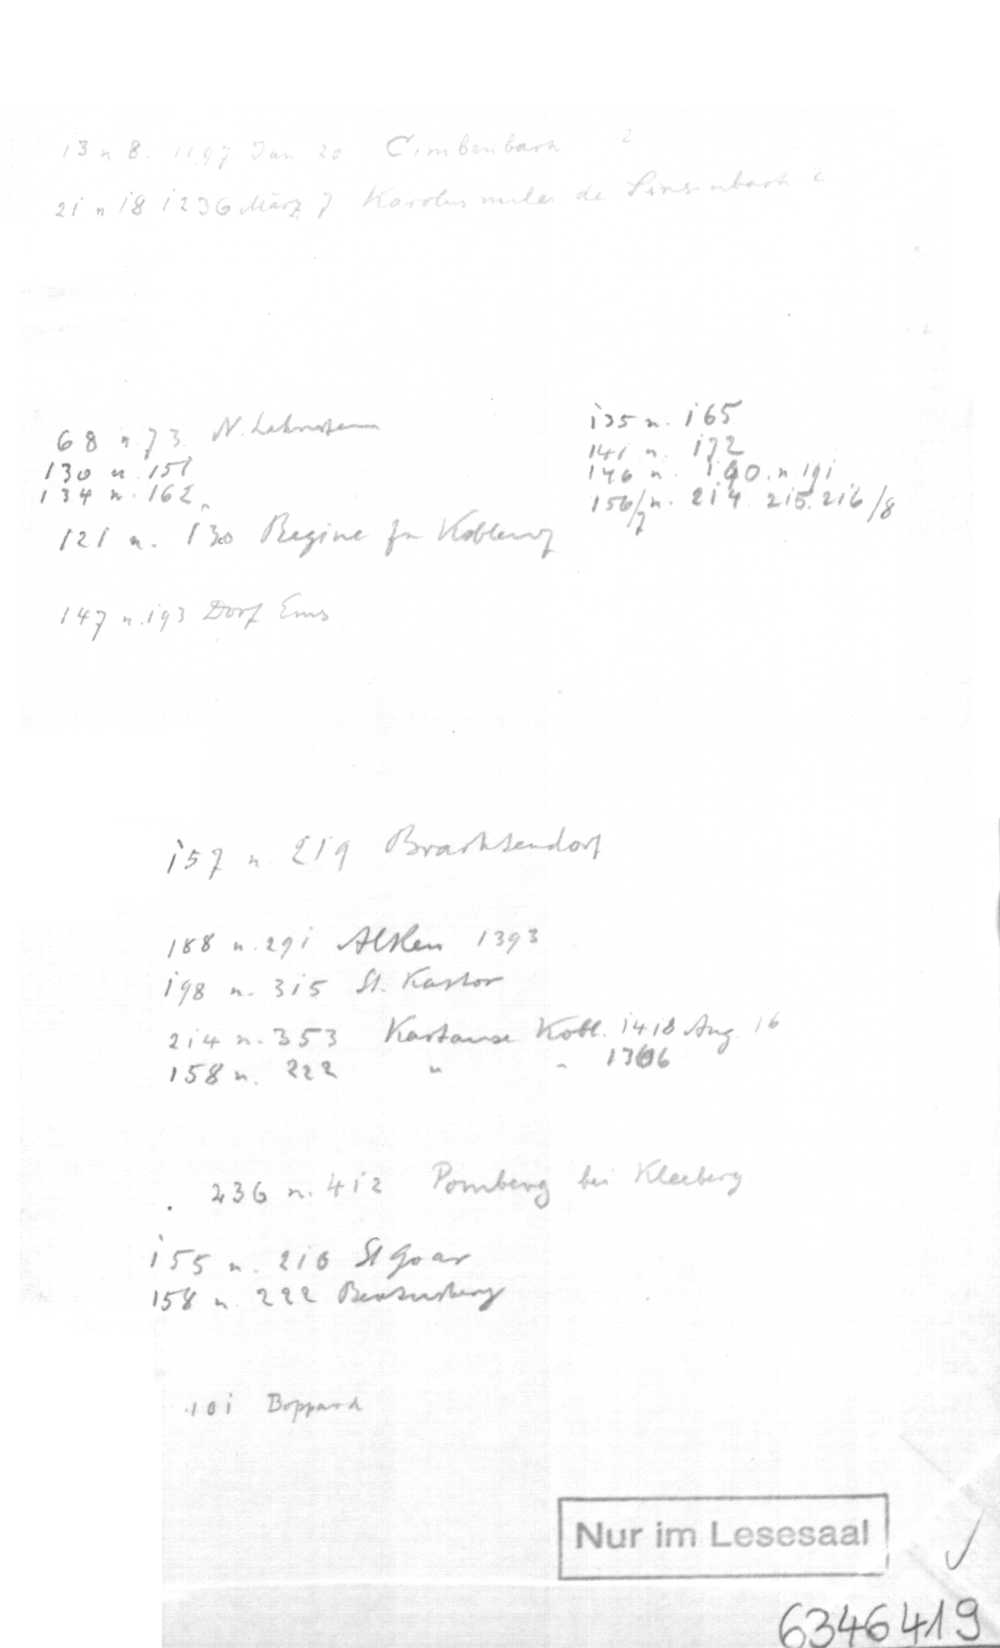 13 n 8. 1197 Jan 20 Cimbenbach 2
21 n 18 1236 März 7 Karolus miles de
68 n 73 N. Lahnstein
130 n. 151
134 n. 162
135 n. 165
141 n. 172
146 n. 190. n 191
156/7 n. 214 215. 216 /8
121 n. 130 Begine in Koblenz
147 n. 193 Dorf Ems
157 n. 219 Brachtendorf
188 n. 291 Alken 1393
198 n. 315 St. Kastor
214 n. 353 Kartause Kobl. 1418 Aug. 16
158 n. 222 " " 1366
236 n. 412 Pomberg bei Kleeberg
155 n. 210 St Goar
158 n. 222 Beatusberg
101 Boppard
Nur im Lesesaal
6346419